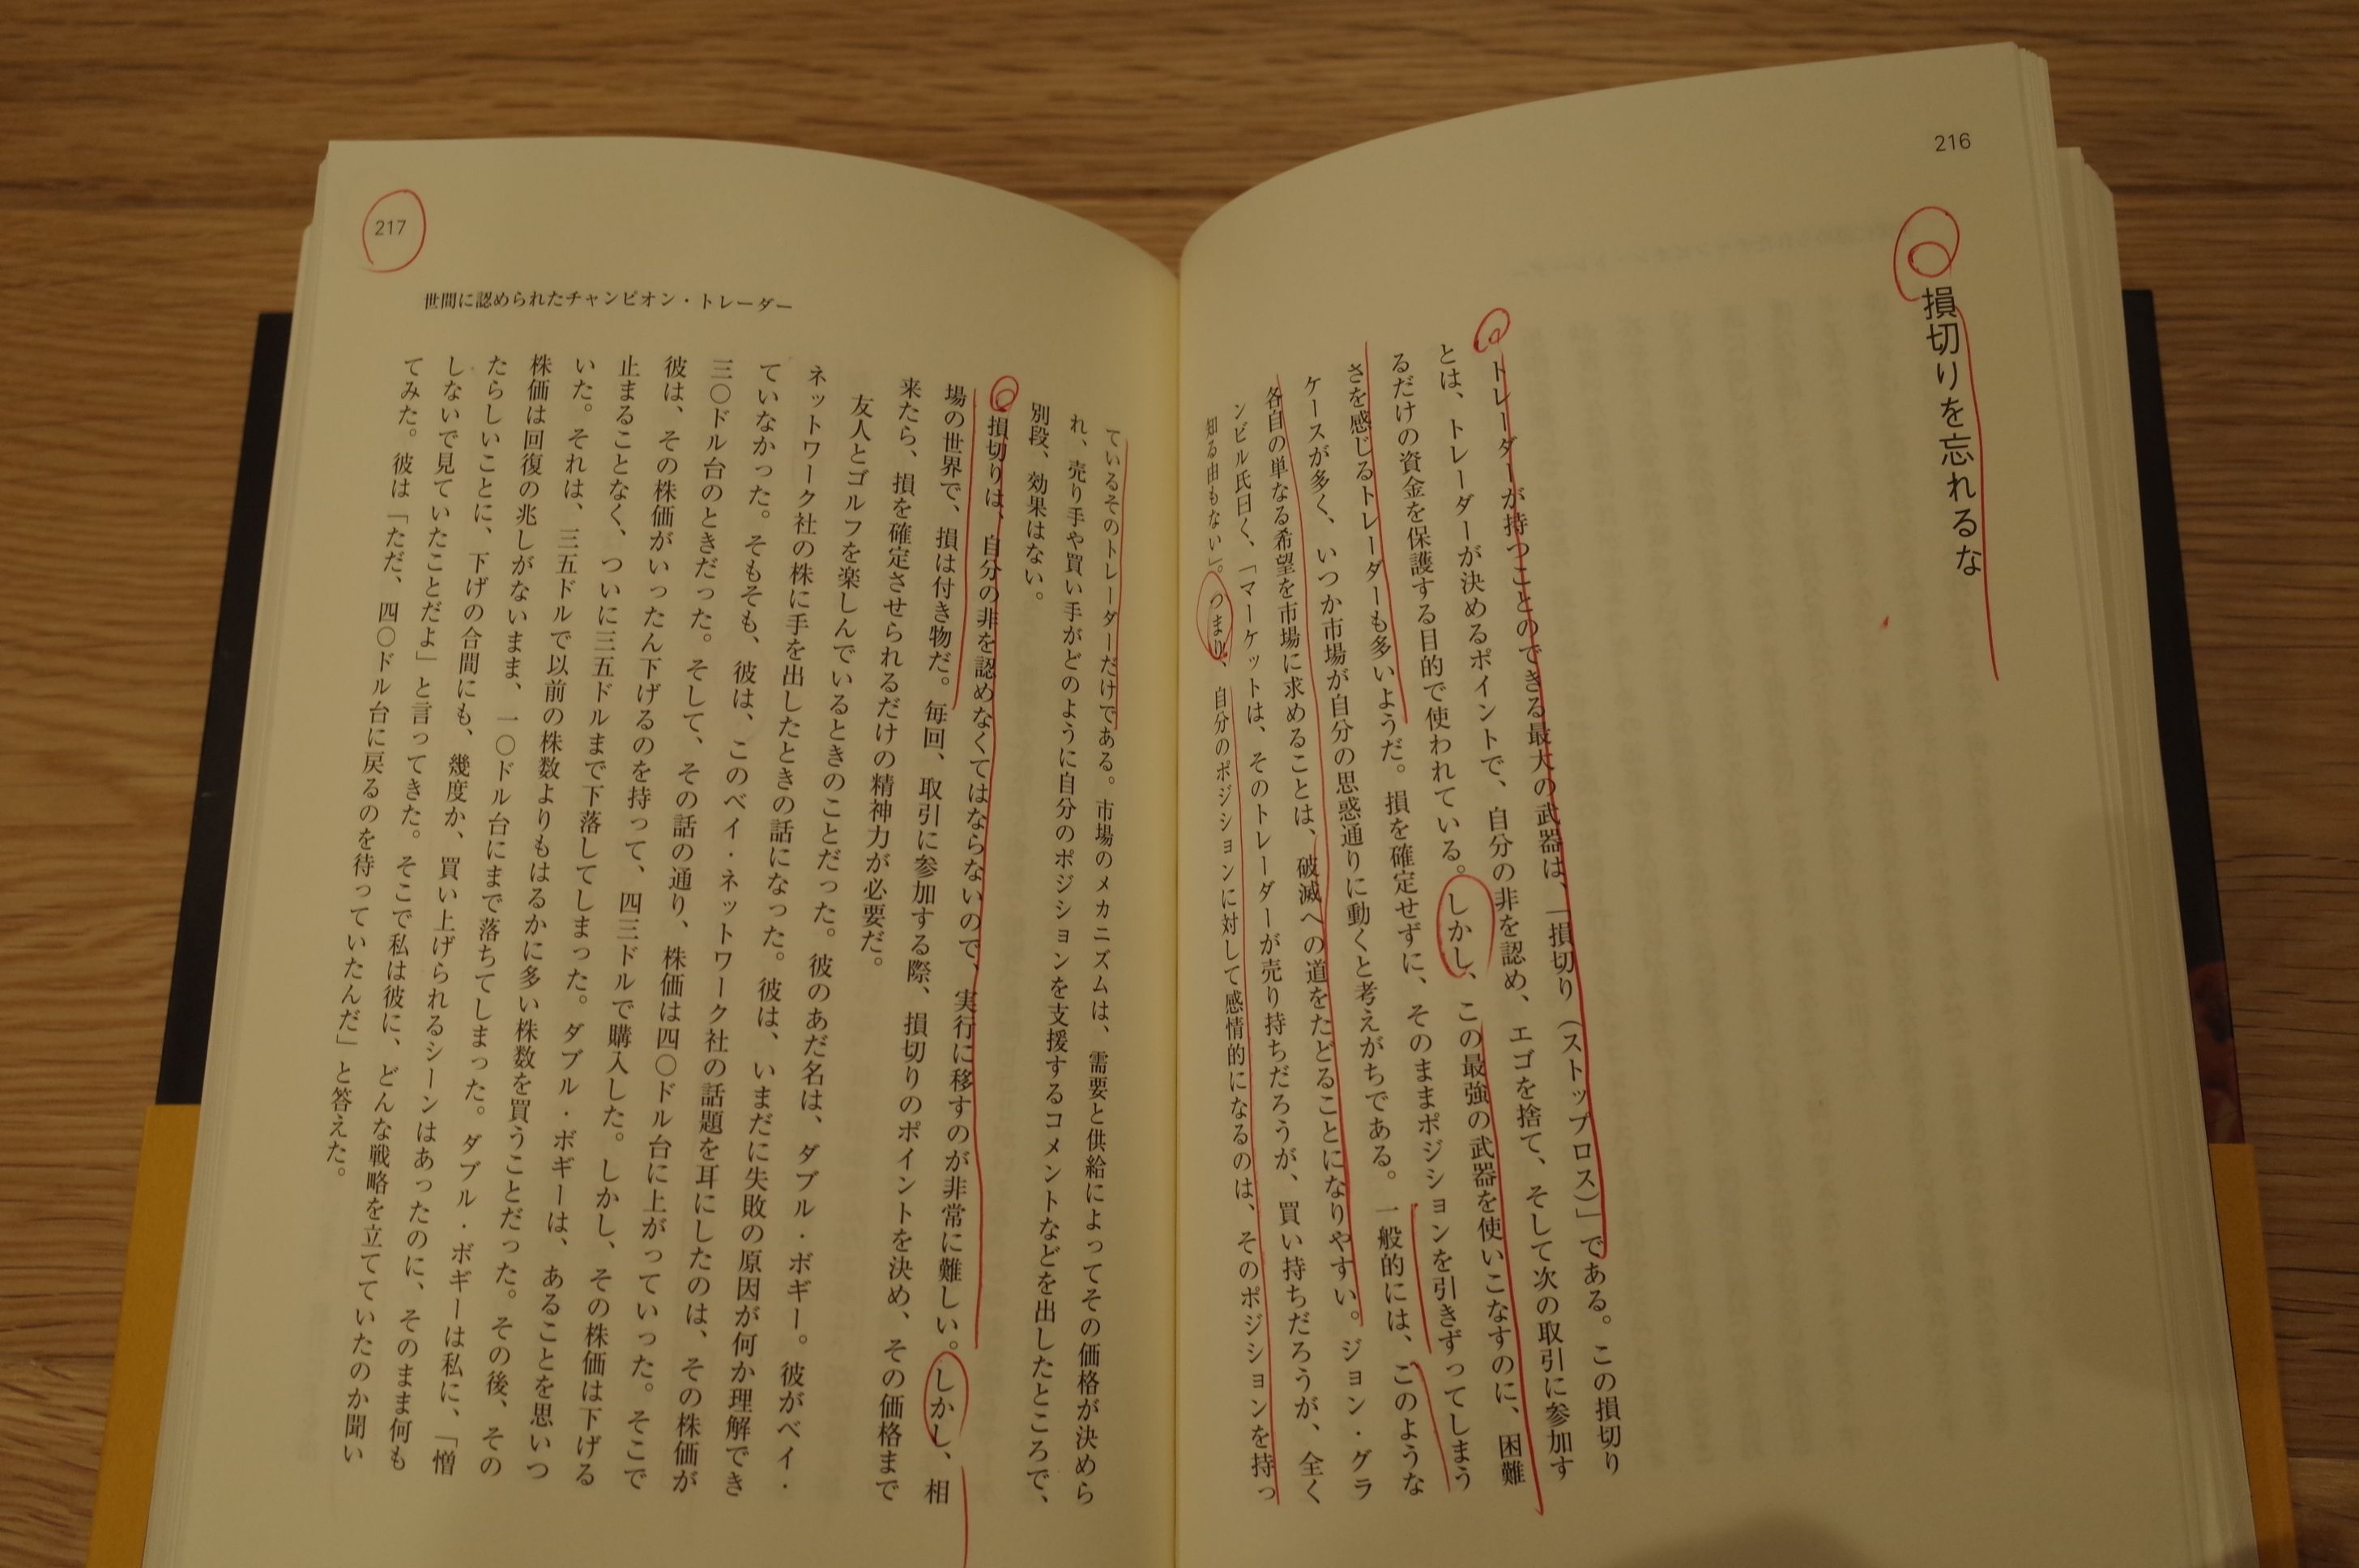 216
損切りを忘れるな
トレーダーが持つことのできる最大の武器は、「損切り（ストップロス）」である。この損切り
とは、トレーダーが決めるポイントで、自分の非を認め、エゴを捨て、そして次の取引に参加す
るだけの資金を保護する目的で使われている。しかし、この最強の武器を使いこなすのに、困難
さを感じるトレーダーも多いようだ。損を確定せずに、そのままポジションを引きずってしまう
ケースが多く、いつか市場が自分の思惑通りに動くと考えがちである。一般的には、このような
各自の単なる希望を市場に求めることは、破滅への道をたどることになりやすい。ジョン・グラ
ンビル氏曰く、「マーケットは、そのトレーダーが売り持ちだろうが、買い持ちだろうが、全く
知る由もない」。つまり、自分のポジションに対して感情的になるのは、そのポジションを持っ
217
世間に認められたチャンピオン・トレーダー
ているそのトレーダーだけである。市場のメカニズムは、需要と供給によってその価格が決めら
れ、売り手や買い手がどのように自分のポジションを支援するコメントなどを出したところで、
別段、効果はない。
損切りは、自分の非を認めなくてはならないので、実行に移すのが非常に難しい。しかし、相
場の世界で、損は付き物だ。毎回、取引に参加する際、損切りのポイントを決め、その価格まで
来たら、損を確定させられるだけの精神力が必要だ。
友人とゴルフを楽しんでいるときのことだった。彼のあだ名は、ダブル・ボギー。彼がベイ・
ネットワーク社の株に手を出したときの話になった。彼は、いまだに失敗の原因が何か理解でき
ていなかった。そもそも、彼は、このベイ・ネットワーク社の話題を耳にしたのは、その株価が
三〇ドル台のときだった。そして、その話の通り、株価は四〇ドル台に上がっていった。そこで
彼は、その株価がいったん下げるのを持って、四三ドルで購入した。しかし、その株価は下げる
止まることなく、ついに三五ドルまで下落してしまった。ダブル・ボギーは、あることを思いつ
いた。それは、三五ドルで以前の株数よりもはるかに多い株数を買うことだった。その後、その
株価は回復の兆しがないまま、一〇ドル台にまで落ちてしまった。ダブル・ボギーは私に、「憎
たらしいことに、下げの合間にも、幾度か、買い上げられるシーンはあったのに、そのまま何も
しないで見ていたことだよ」と言ってきた。そこで私は彼に、どんな戦略を立てていたのか聞い
てみた。彼は「ただ、四〇ドル台に戻るのを待っていたんだ」と答えた。